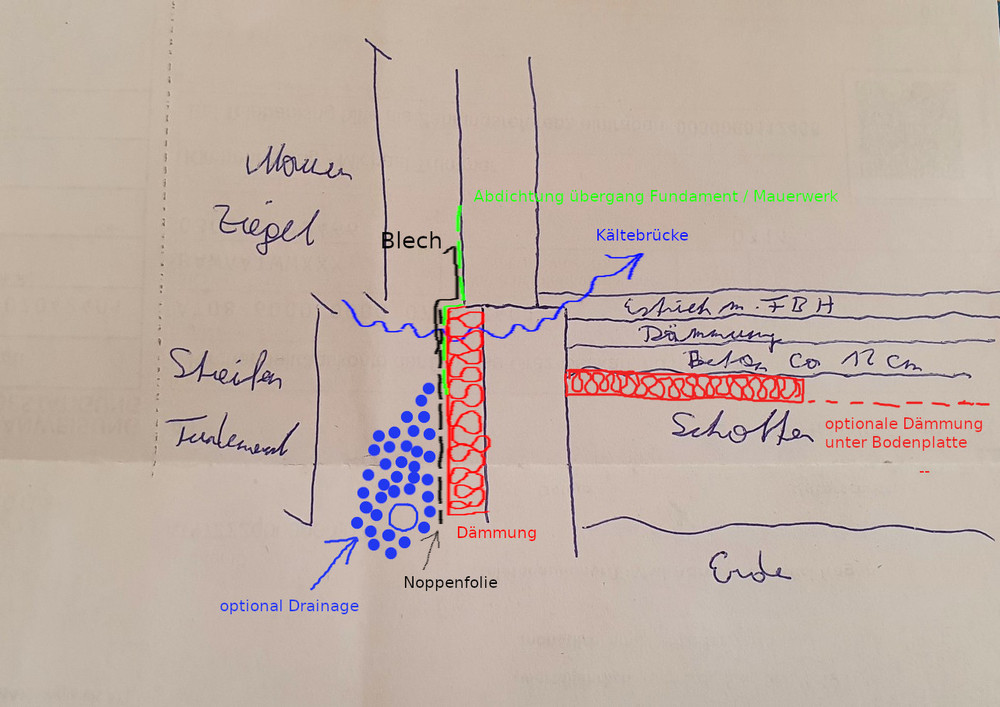 Mauer
Ziegel
Abdichtung übergang Fundament / Mauerwerk
Blech
Kältebrücke
Estrich m. FBH
Dämmung
Beton Ca 12 cm
Streifen
Fundament
Schotter
optionale Dämmung
unter Bodenplatte
--
Dämmung
Erde
Noppenfolie
optional Drainage